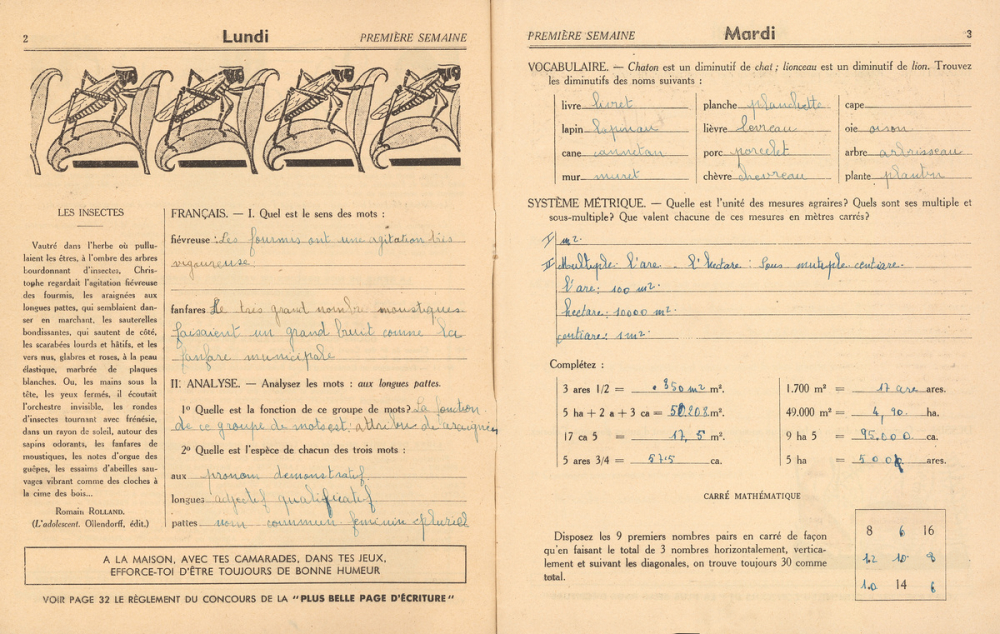 2 Lundi PREMIÈRE SEMAINE
LES INSECTES
Vautré dans l'herbe où pullu-
laient les êtres, à l'ombre des arbres
bourdonnant d'insectes, Chris-
tophe regardait l'agitation fiévreuse
des fourmis, les araignées aux
longues pattes, qui semblaient dan-
ser en marchant, les sauterelles
bondissantes, qui sautent de côté,
les scarabées lourds et hâtifs, et les
vers nus, glabres et roses, à la peau
élastique, marbrée de plaques
blanches. Ou, les mains sous la
tête, les yeux fermés, il écoutait
l'orchestre invisible, les rondes
d'insectes tournant avec frénésie,
dans un rayon de soleil, autour des
sapins odorants, les fanfares de
moustiques, les notes d'orgue des
guêpes, les essaims d'abeilles sau-
vages vibrant comme des cloches à
la cime des bois...
Romain ROLLAND.
(L'adolescent. Ollendorff, édit.)
FRANÇAIS. — I. Quel est le sens des mots :
fiévreuse : Les fourmis ont une agitation très
vigoureuse
fanfares Le très grand nombre moustiques
faisaient un grand bruit comme la
fanfare municipale
II. ANALYSE. — Analysez les mots : aux longues pattes.
1º Quelle est la fonction de ce groupe de mots? La fonction
de ce groupe de mots est: attribut de araignées
2º Quelle est l'espèce de chacun des trois mots :
aux pronom demonstratif
longues adjectif qualificatif
pattes nom commun feminin pluriel
A LA MAISON, AVEC TES CAMARADES, DANS TES JEUX,
EFFORCE-TOI D'ÊTRE TOUJOURS DE BONNE HUMEUR
VOIR PAGE 32 LE RÈGLEMENT DU CONCOURS DE LA "PLUS BELLE PAGE D'ÉCRITURE"
PREMIÈRE SEMAINE Mardi 3
VOCABULAIRE. — Chaton est un diminutif de chat ; lionceau est un diminutif de lion. Trouvez
les diminutifs des noms suivants :
livre livret planche planchette cape
lapin lapineau lièvre levreau oie oison
cane cannetau porc porcelet arbre arbrisseau
mur muret chèvre chevreau plante
SYSTÈME MÉTRIQUE. — Quelle est l'unité des mesures agraires? Quels sont ses multiple et
sous-multiple? Que valent chacune de ces mesures en mètres carrés?
I m².
II Multiple l'are - l'hectare: Sous mutiple centiare.
l'are: 100 m².
hectare: 10000 m².
centiare: 1 m².
Complétez :
3 ares 1/2 = 350 m² m². 1.700 m² = 17 are ares.
5 ha + 2 a + 3 ca = m². 49.000 m² = 4,90. ha.
17 ca 5 = 17,5 m². 9 ha 5 = 95.000 ca.
5 ares 3/4 = 575 ca. 5 ha = ares.
CARRÉ MATHÉMATIQUE
Disposez les 9 premiers nombres pairs en carré de façon
qu'en faisant le total de 3 nombres horizontalement, vertica-
lement et suivant les diagonales, on trouve toujours 30 comme
total.
8 6 16
12 10 8
10 14 6